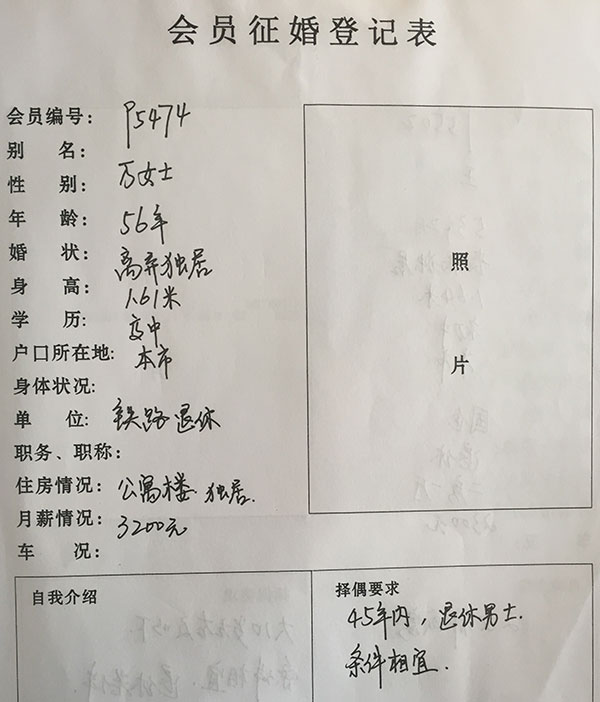 会员征婚登记表
会员编号： P5474
别 名：
性 别： 万女士
年 龄： 56年
婚 状： 离弃独居
身 高： 1.61米
学 历： 高中
户口所在地： 本市
身体状况：
单 位： 铁路退休
职务、职称：
住房情况： 公寓楼 独居.
月薪情况： 3200元
车 况：
照
片
自我介绍
择偶要求
45年内，退休男士.
条件相宜.